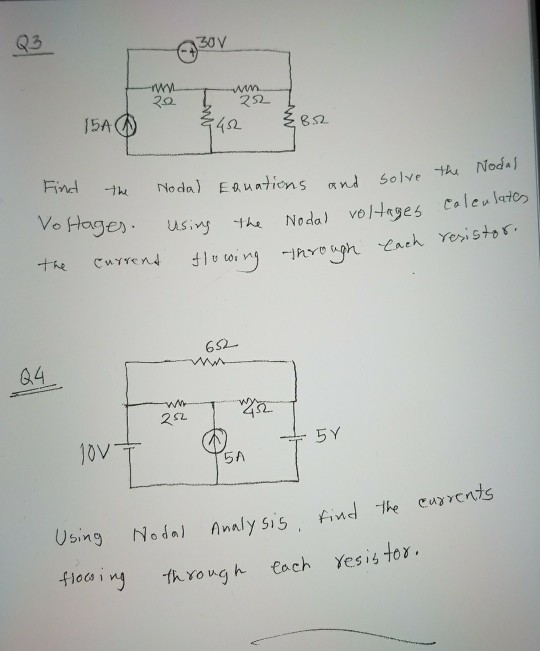 Q3
30V
- +
2Ω
2Ω
15A
4Ω
8Ω
Find the Nodal Equations and solve the Nodal
Voltages. Using the Nodal voltages calculates
the current flowing through each resistor.
6Ω
Q4
2Ω
4Ω
10V
5A
5V
Using Nodal Analysis, find the currents
flowing through each resistor.